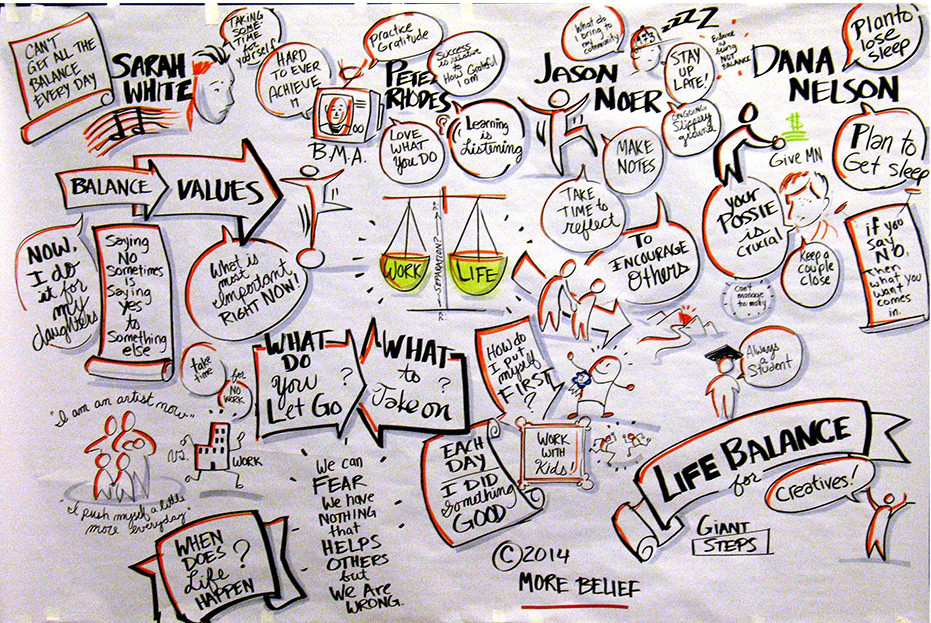 CAN'T
GET ALL THE
BALANCE
EVERY DAY
SARAH
WHITE
TAKING
SOME-
TIME
for
yourself
HARD
TO EVER
ACHIEVE
IT
Practice
Gratitude
PETER
RHODES
Success
is relative
to
How Grateful
I am
B.M.A.
LOVE
WHAT
You DO
Learning
is
Listening
JASON
NOER
What do
I bring to
my
community
ZZZZ
STAY
UP
LATE!
Balance
is
NOT
BALANCE
ONGOING
Slippery
ground
MAKE
NOTES
TAKE
TIME to
reflect
TO
ENCOURAGE
OTHERS
DANA
NELSON
Plan to
lose
sleep
Plan to
Get sleep
$
Give MN
your
POSSIE
is
crucial
Keep a
couple
close
if you
say
NO,
Then
what you
want
comes
in.
Can't
manage
to
BALANCE
VALUES
NOW,
I do
it for
my
daughters
Saying
NO
Sometimes
is
Saying
Yes
to
Something
else
What is
most
Important
RIGHT NOW!
WORK
SEPARATION?
LIFE
take
time
for
NO
WORK
WHAT
DO
You
Let Go
?
WHAT
to
?
Take on
HOW do
I put
myself
FIRST
?
Always
a
Student
"I am an artist now"
VS.
WORK
"I push myself a little
more everyday."
We can
FEAR
We have
NOTHING
that
HELPS
OTHERS
but
We Are
WRONG.
EACH
DAY
I DID
Something
GOOD
WORK
WITH
Kids!
LIFE BALANCE
for
Creatives!
GIANT
STEPS
WHEN
DOES
Life
HAPPEN
?
©2014
MORE BELIEF